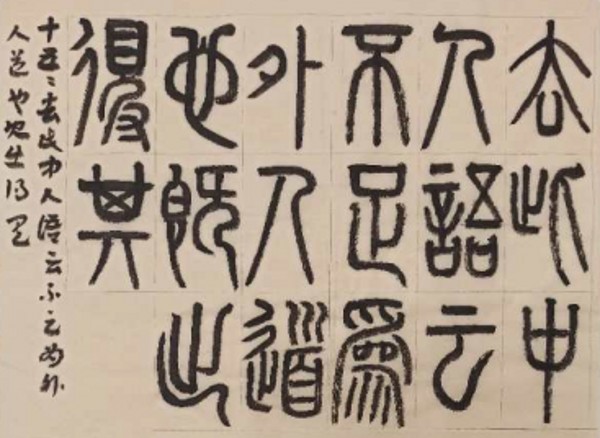 去此中
人語云
不足爲
外人道
也既出
得其
十五去此中人語云不足為外
人道也既出得其